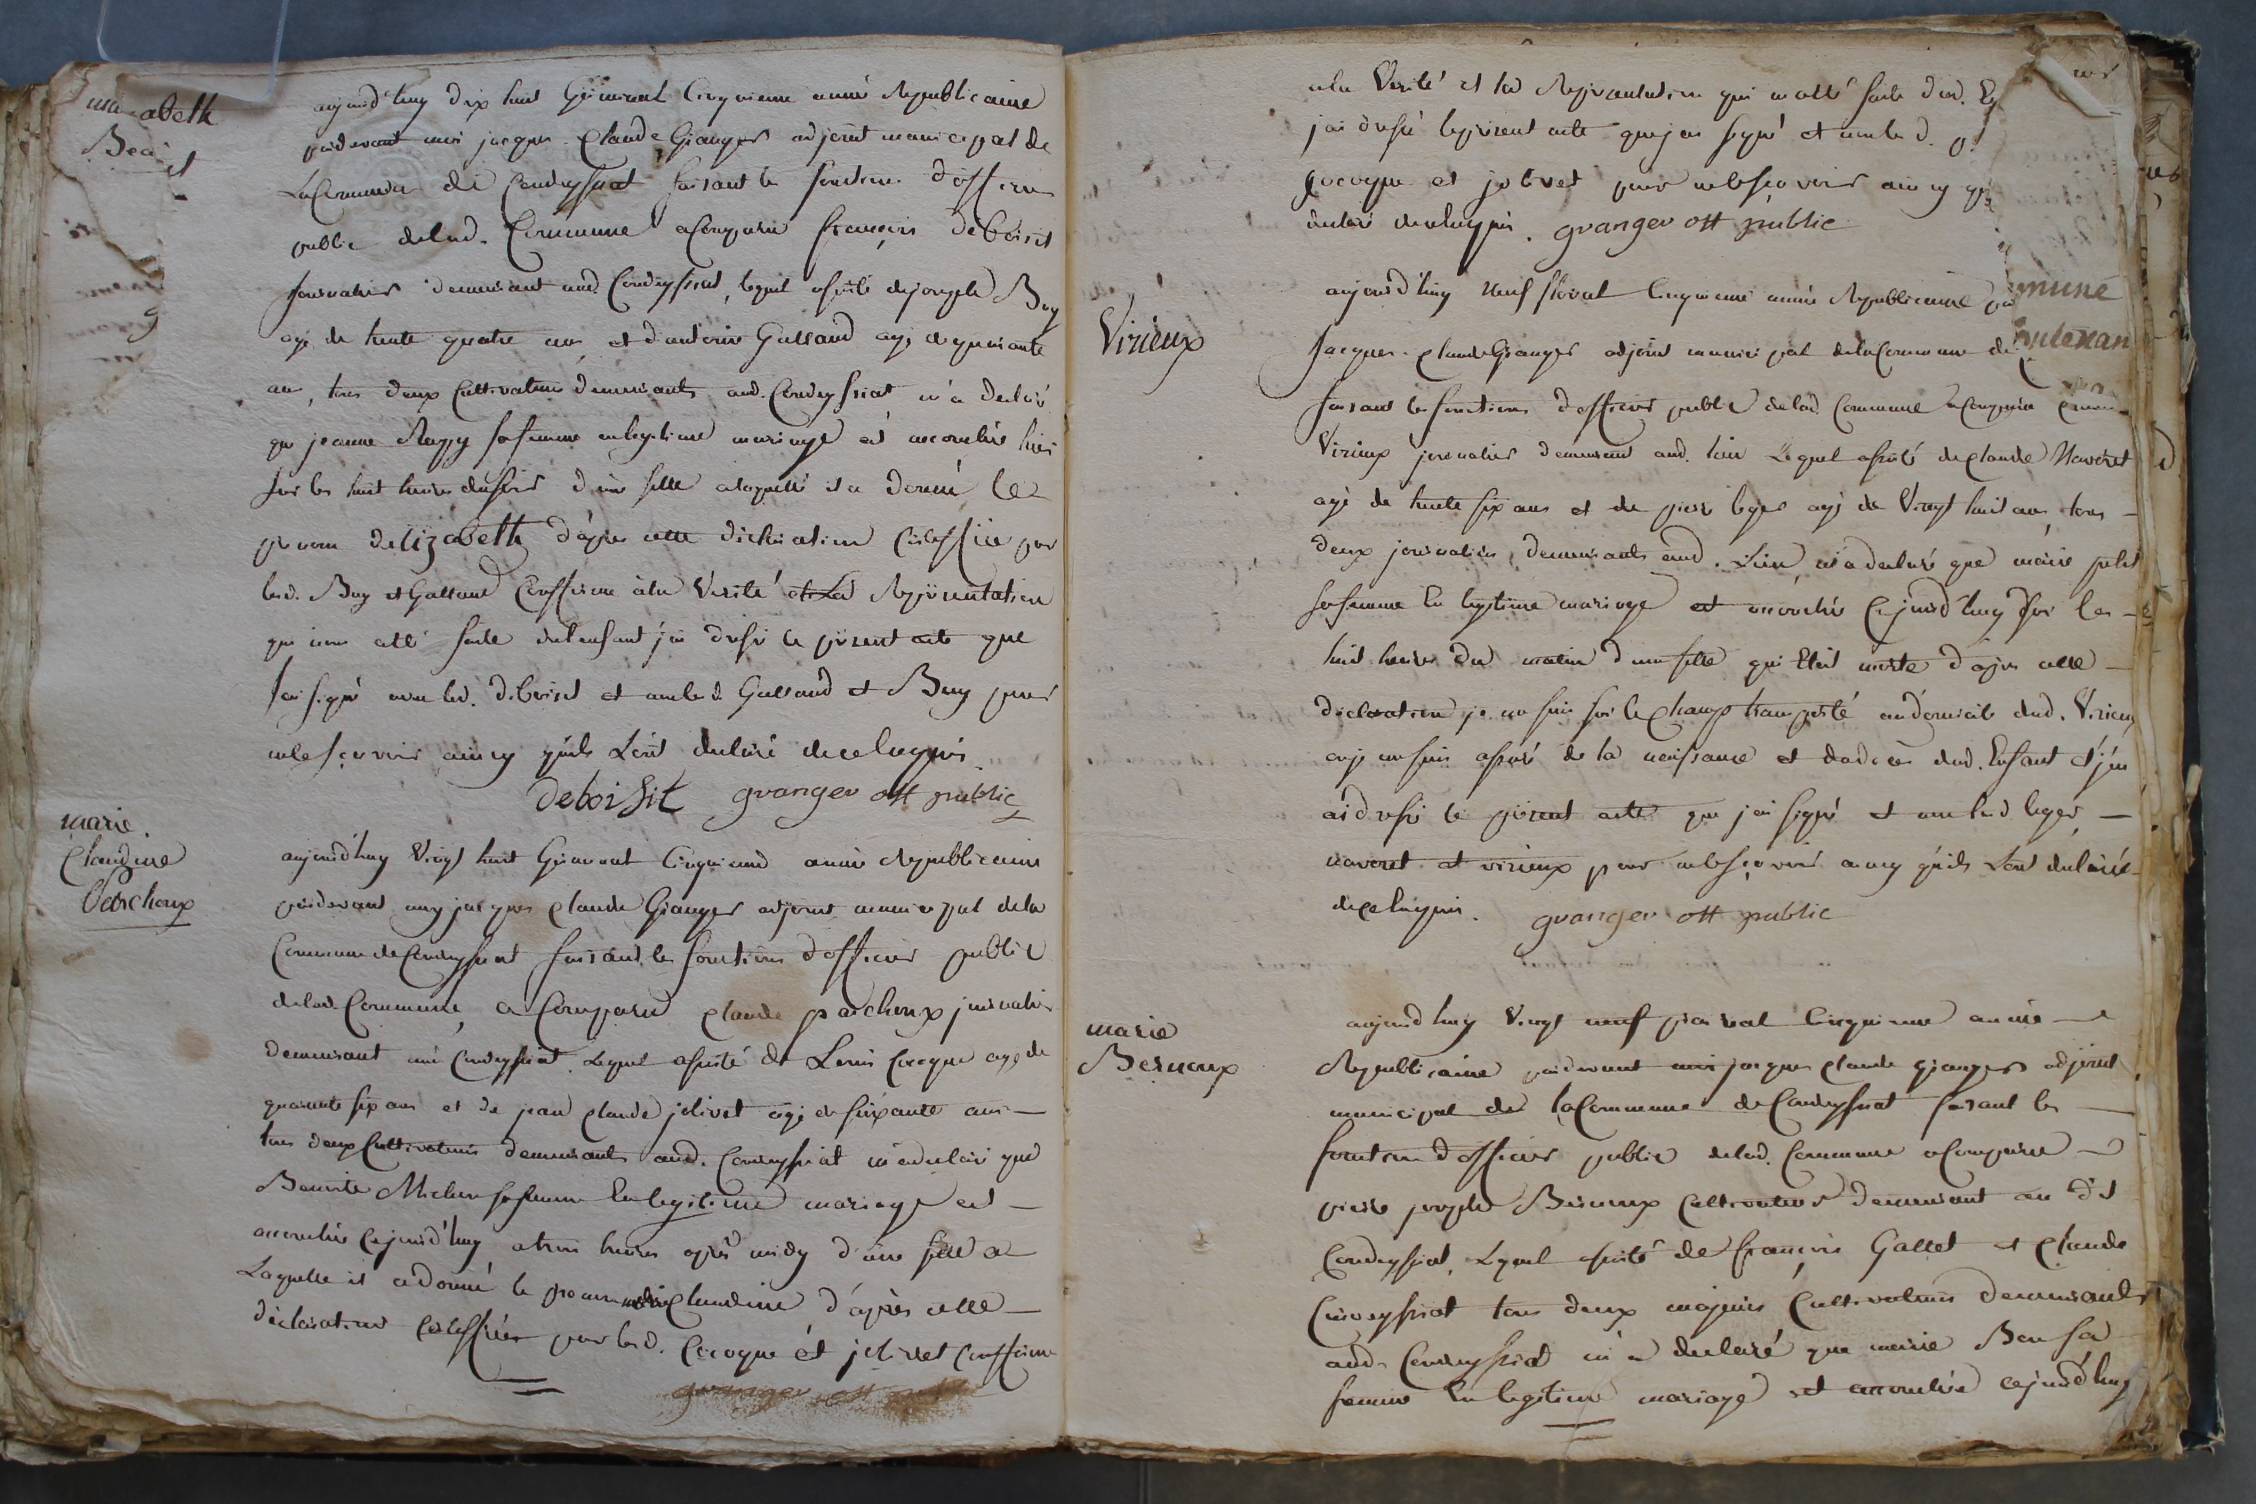 abeth
aujourd'huy dix huit Germinal Cinquieme année Republicaine
pardevant moi jacques Claude Granger adjoint municipal de
La Commune de Condeyssiat faisant les fonctions d'officier
public de lad. Commune a Comparu françois deboisit
journalier demeurant aud. Condeyssiat, lequel assisté de joseph Buy
agé de trente quatre ans et d'antoine Galland agé de quarante
ans, tous deux Cultivateurs demeurants aud. Condeyssiat m'a declaré
que jeanne sa femme en legitime mariage est accouchée hier
sur les huit heures du soir d'une fille a laquelle il a donné le
prenom d'elizabeth d'après cette déclaration Certiffiée par
lesd. Buy et Galland Conffirme à la Verité et La Représentation
qui m'a été faite de l'enfant j'ai dressé le présent acte que
j'ai signé avec led. deboisit et non lesd. Galland et Buy pour
ne le sçavoir ainsy qu'ils L'ont declaré de ce enquis.
deboisit granger off public
marie
Claudine
aujourd'huy Vingt huit Germinal Cinquieme année Republicaine
pardevant moy jacques Claude Granger adjoint municipal de la
Commune de Condeyssiat faisant les fonctions d'officier public
de lad. Commune, a Comparu Claude journalier
demeurant aud. Condeyssiat, Lequel assisté de Louis Cocogne agé de
quarante six ans et de jean Claude jolivet agé de soixante ans
tous deux Cultivateurs demeurants aud. Condeyssiat m'a declaré que
Benoite sa femme En legitime mariage est
accouchée Cejourd'huy a trois heures après midy d'une fille a
Laquelle il a donné le prenom marie Claudine d'après cette
déclaration Certiffiée par lesd. Cocogne et jolivet Conffirme
granger off public
a la Verité et la Représentation qui m'a été faite dud.
j'ai dressé le présent acte que j'ai signé et non lesd.
Cocogne et jolivet pour ne le sçavoir ainsy
declaré de ce enquis. granger off public
Virieux
aujourd'huy neuf floreal Cinquieme année Republicaine
mune
jacques Claude Granger adjoint municipal de la Commune de
faisant les fonctions d'officier public de lad. Commune a Comparu
Virieux journalier demeurant aud. lieu Lequel assisté de Claude Naveret
agé de trente six ans et de pierre leger agé de Vingt huit ans, tous
deux journaliers, demeurants aud. Lieu, m'a declaré que marie petit
sa femme En legitime mariage est accouchée Cejourd'huy sur les
huit heures du matin d'une fille qui Etoit morte d'après cette
déclaration je me suis sur le champ transporté au domicile dud. Virieux
ou je me suis assuré de la naissance et du deces dud. Enfant et j'en
ai dressé le présent acte que j'ai signé et non lesd. leger,
naveret et virieux pour ne le sçavoir ainsy qu'ils L'ont declaré
de ce enquis. granger off public
marie
Bernoux
aujourd'huy Vingt neuf prairial Cinquieme année
Republicaine pardevant moi jacques Claude Granger adjoint
municipal de la Commune de Condeyssiat faisant les
fonctions d'officier public de lad. Commune a Comparu
pierre joseph Bernoux Cultivateur demeurant au dit
Condeyssiat, Lequel assisté de françois Gallet et Claude
Condeyssiat tous deux majeurs Cultivateurs demeurants
aud. Condeyssiat m'a declaré que marie Bon sa
femme En legitime mariage est accouchée cejourd'huy